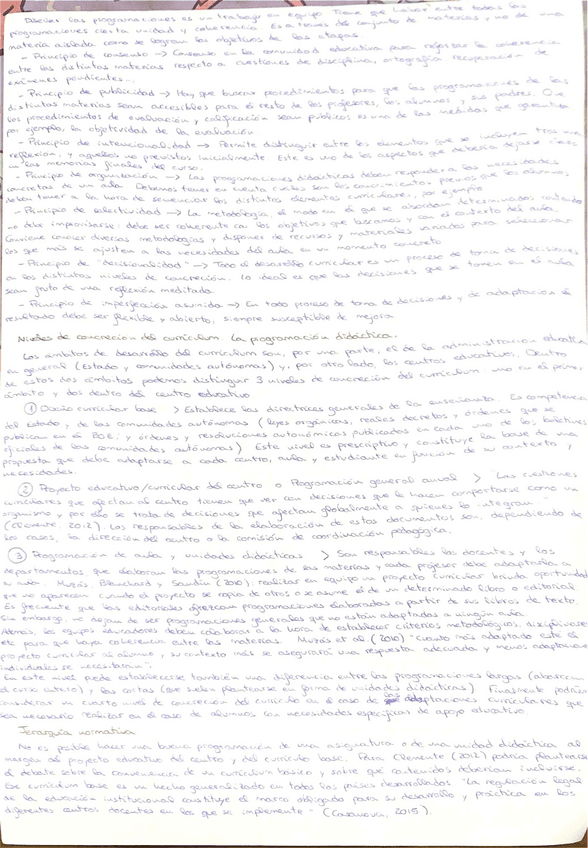 Diseñar las programaciones es un trabajo en equipo Tiene que haber entre todas las
programaciones cierta unidad y coherencia. Es a través del conjunto de materias, y no de una
materia aislada como se logran los objetivos de las etapas
- Principio de consenso → Consenso en la comunidad educativa para reforzar la coherencia
entre las distintas materias respecto a cuestiones de disciplina, ortografía, recuperación de
exámenes pendientes...
- Principio de publicidad → Hay que buscar procedimientos para que las programaciones de las
distintas materias sean accesibles para el resto de los profesores, los alumnos y sus padres. Que
los procedimientos de evaluación y calificación sean públicos es una de las medidas que garantiza
por ejemplo, la objetividad de la evaluación
- Principio de intencionalidad → Permite distinguir entre los elementos que se incluyen tras una
reflexión, y aquellos no previstos inicialmente. Este es uno de los aspectos que debería dejarse claros
las memorias finales del curso.
- Principio de organización → Las programaciones didácticas deben responder a las necesidades
concretas de un aula. Debemos tener en cuenta cuáles son los conocimientos previos que los alumnos
deben tener a la hora de secuenciar los distintos elementos curriculares, por ejemplo
- Principio de selectividad → La metodología, el modo en el que se abordan determinados contenidos
no debe improvisarse: debe ser coherente con los objetivos que buscamos y con el contexto del aula
Conviene conocer diversas metodologías y disponer de recursos y materiales variados para seleccionar
los que más se ajusten a las necesidades del aula en un momento concreto
- Principio de "decisionalidad" → Todo el desarrollo curricular es un proceso de toma de decisiones
a los distintos niveles de concreción. Lo ideal es que las decisiones que se tomen en el aula
sean fruto de una reflexión meditada
- Principio de imperfección asumida → En todo proceso de toma de decisiones y de adaptación el
resultado debe ser flexible y abierto, siempre susceptible de mejora
Niveles de concreción del curriculum La programación didáctica.
Los ámbitos de desarrollo del curriculum son, por una parte, el de la administración educativa
en general (estado y comunidades autónomas) y, por otro lado, los centros educativos. Dentro
de estos dos ámbitos podemos distinguir 3 niveles de concreción del curriculum uno en el primer
ámbito y dos dentro del centro educativo
① Diseño curricular base > Establece las directrices generales de la enseñanza. Es competencia
del Estado, y de las comunidades autónomas (leyes orgánicas, reales decretos y órdenes que se
publican en el BOE, y órdenes y resoluciones autonómicas publicadas en cada uno de los boletines
oficiales de las comunidades autónomas) Este nivel es prescriptivo y constituye la base de una
propuesta que debe adaptarse a cada centro, aula y estudiante en función de su contexto y
necesidades.
② Proyecto educativo/curricular del centro o Programación general anual > "Las cuestiones
curriculares que afectan al centro tienen que ver con decisiones que le hacen comportarse como un
organismo y por ello se trata de decisiones que afectan globalmente a quienes lo integran"
(Clemente, 2012). Los responsables de la elaboración de estos documentos son, dependiendo de
los casos, la dirección del centro o la comisión de coordinación pedagógica.
③ Programación de aula y unidades didácticas > Son responsables los docentes y los
departamentos que elaboran las programaciones de sus materias y cada profesor debe adaptarla a
su aula Blanchard y (2010): realizar en equipo un proyecto curricular brinda oportunidades
que no aparecen cuando el proyecto se copia de otros o se asume el de un determinado libro o editorial
Es frecuente que las editoriales ofrezcan programaciones elaboradas a partir de sus libros de texto
Sin embargo, no dejan de ser programaciones generales que no están adaptadas a ningún aula
Además, los equipos educadores deben colaborar a la hora de establecer criterios metodológicos, disciplinares
etc para que haya coherencia entre las materias. et al. (2010) "cuanto más adaptado esté el
proyecto curricular al alumno y su contexto más se asegurará una respuesta adecuada y menos adaptaciones
individuales se necesitarán".
En este nivel puede establecerse también una diferencia entre las programaciones largas (abarcan
el curso entero) y las cortas (que suelen plantearse en forma de unidades didácticas). Finalmente podría
considerar un cuarto nivel de concreción del currículo en el caso de las adaptaciones curriculares que
sea necesario realizar en el caso de alumnos con necesidades específicas de apoyo educativo.
Jerarquía normativa
No es posible hacer una buena programación de una asignatura o de una unidad didáctica al
margen del proyecto educativo del centro y del currículo base. Para Clemente (2012) podría plantearse
el debate sobre la conveniencia de un curriculum básico y sobre qué contenidos deberían incluirse.
Ese curriculum base es un hecho generalizado en todos los países desarrollados "La regulación legal
de la educación institucional constituye el marco obligado para su desarrollo y práctica en los
diferentes centros docentes en los que se implemente" (Casanova, 2015).